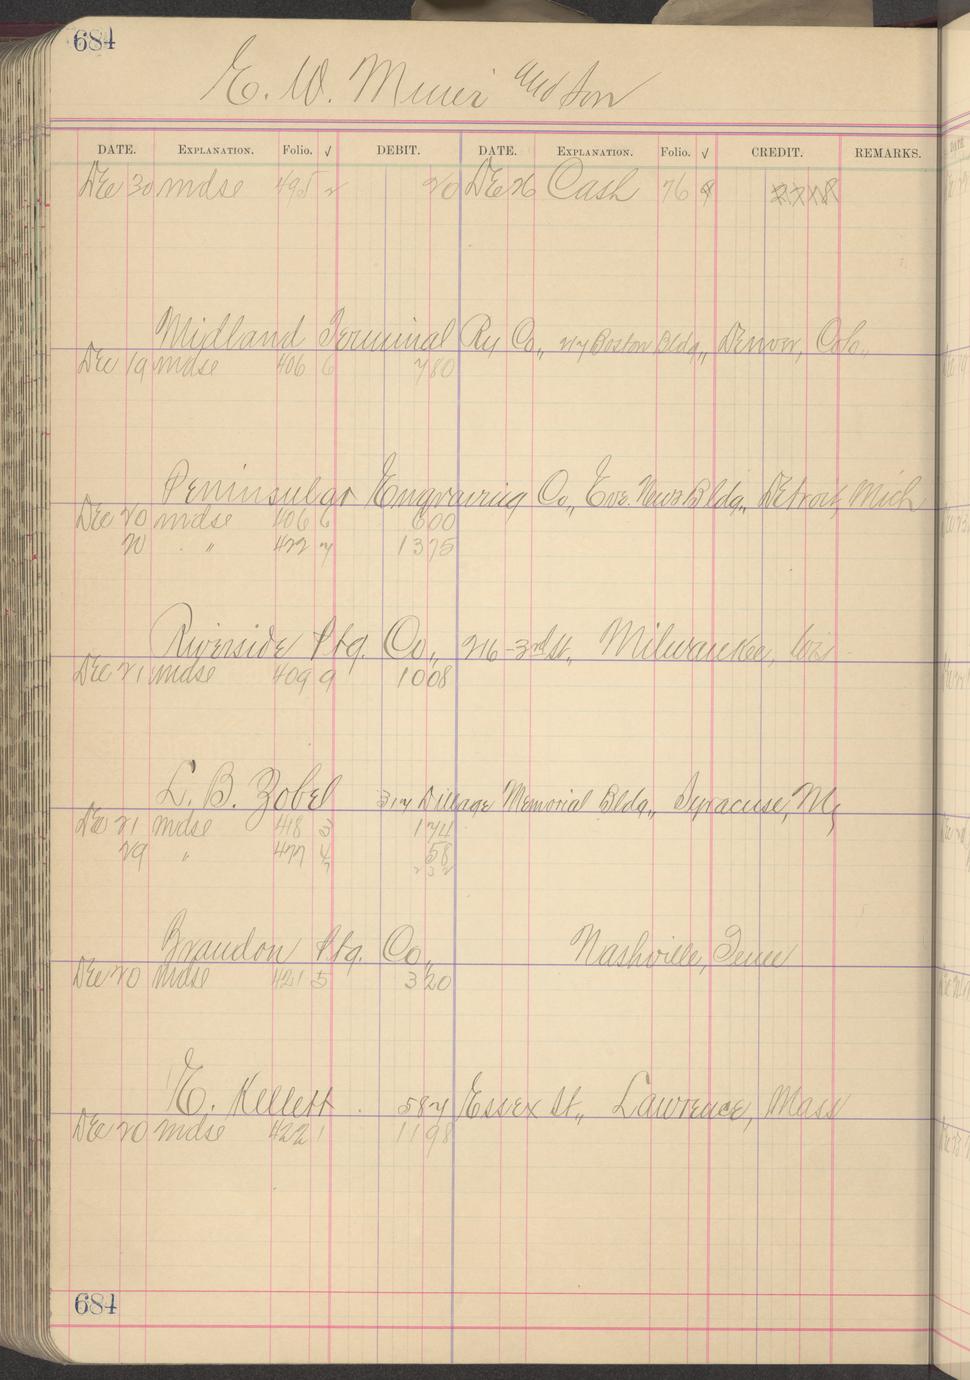 684
E. W. and Son
DATE. EXPLANATION. Folio. √ DEBIT. DATE. EXPLANATION. Folio. √ CREDIT. REMARKS.
Dec 30 mdse 495 2 20 Dec 26 Cash 76
Midland Terminal Ry Co., Boston Bldg., Denver, Colo.,
Dec 19 mdse 406 6 780
Peninsular Engraving Co., Eve. News Bldg., Detroit, Mich
Dec 20 mdse 406 6 600
20 " 422 7 1375
Riverside Ptg. Co., 216-3rd St., Milwaukee, Wis
Dec 21 mdse 409 9 1008
L. B. Zobel 317 Dillaye Memorial Bldg., Syracuse, NY
Dec 21 mdse 418 3 174
29 " 477 4 58
7 232
Brandon Ptg. Co., Nashville, Tenn
Dec 20 mdse 421 5 320
E. Kellett 587 Essex St., Lawrence, Mass
Dec 20 mdse 422 1 1198
684